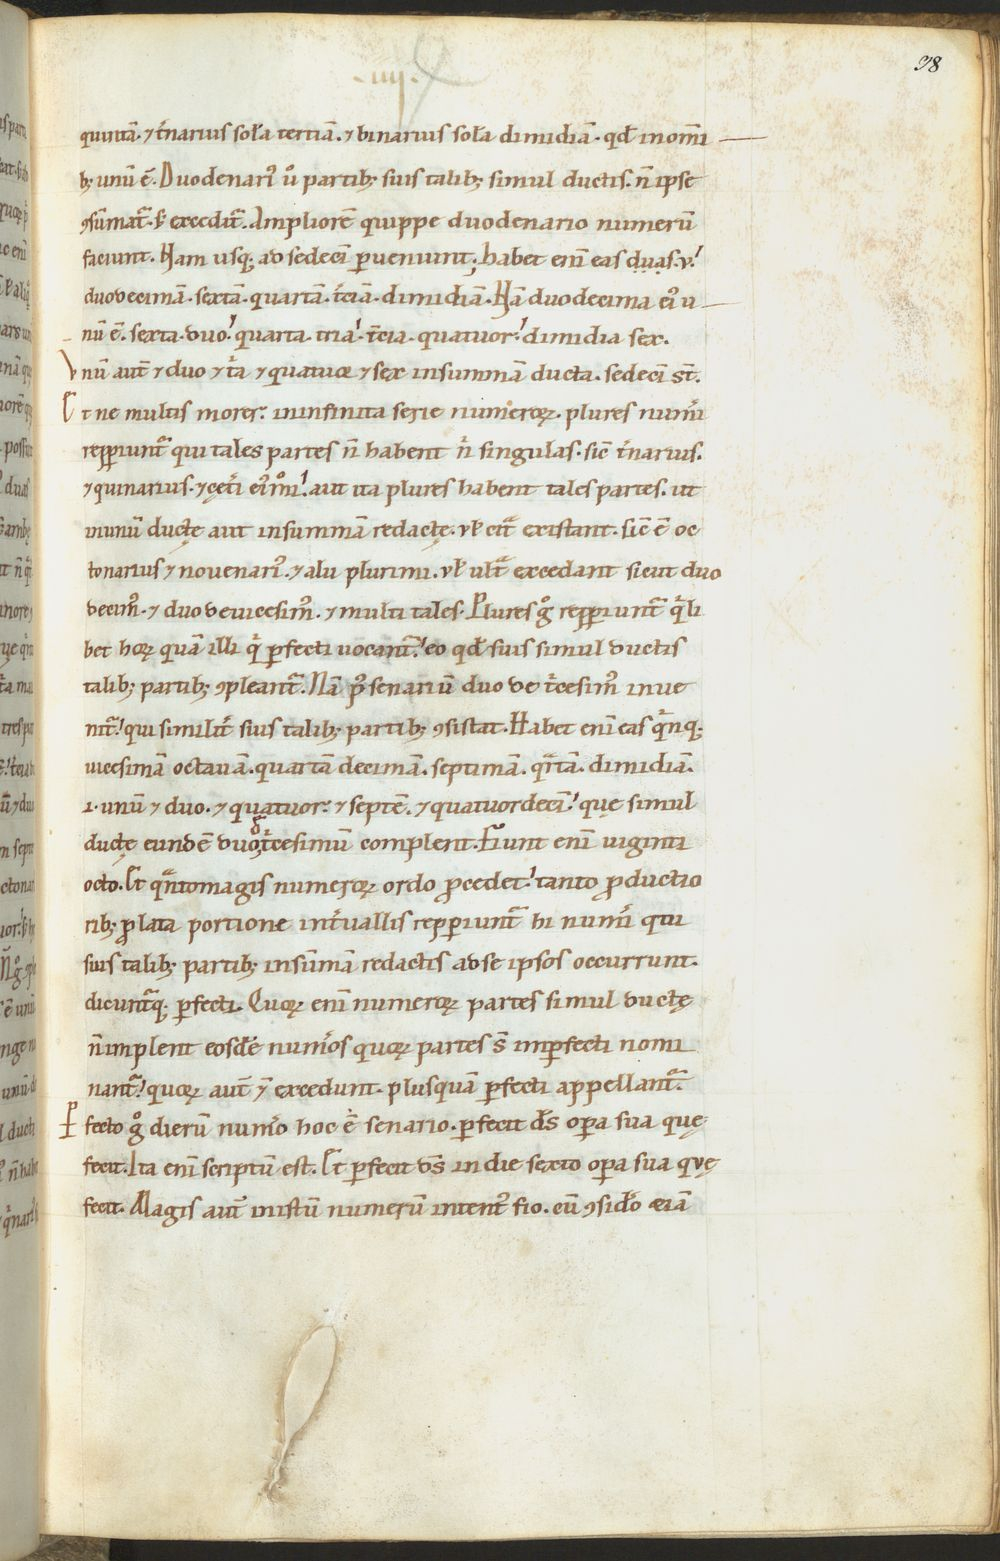 98
.iiii.
quintā· ⁊ t̄narius sol̄a tertiā· ⁊ binarius sol̄a dimidiā· qđ in om̄i
b; unū ē. Duodenari᾿ ů partib; suis talib; simul ductis. n̄ ipse
ꝯsūmat᷑. s; excedit᷑. Ampliorē quippe duodenario numerū
faciunt. Nam usq; ad sedecī ꝑueniunt. habet eni᷑ eas duas. v.
duodecimā· sextā· quartā· t̄ciā· dimidiā. Nā duodecima ei᾿ u
nū ē. sexta duo. quarta tria. t̄cia quatuor. dimidia sex.
Vnū aut̄ ⁊ duo ⁊ t͛a ⁊ quatuor ⁊ sex in summā ducta. sedecī s̄t.
Et ne multis morer. in infinita serie numeroꝝ· plures num͛i
repꝑiunt᷑ qui tales partes n̄ habent n͛ singulas. sic̄ t̄narius.
⁊ quinarius· ⁊ cęt͛i ei᾿m͛i. aut ita plures habent tales partes. ut
in unū ductę aut in summā redactę. ut̄ cit᷑ existant. sic̄ ē oc
tonarius ⁊ nouenari᾿. ⁊ alii plurimi. ut̄ ult᷑ excedant sicut duo
decim᾿. ⁊ duodeuicesim᾿. ⁊ multi tales. Plures g̊ repꝑiunt᷑ q͛li
bet hoꝝ quā illi q͛ ꝑfecti uocant᷑. eo qđ suis simul ductis
talib; partib; ꝯpleant᷑. Nā p᾿ senariū duo de t͛cesim᾿ inue
nit᷑. qui simil͛it suis talib; partib; ꝯsistat. Habet enī eas q͛nq;
uicesimā octauā· quartā decimā· septimā· q᷑rtā· dimidiā.
.i. unū ⁊ duo. ⁊ quatuor. ⁊ septē. ⁊ quatuordecī. quę simul
ductę eundē duodet͛cesimū complent. Fiunt enī uiginti
octo. Et q᷑ntomagis numeroꝝ ordo ꝓcedet. tanto ꝓductio
rib; ꝓlata portione int͛uallis repꝑiunt᷑ hi num͛i qui
suis talib; partib; in sūmā redactis ad se ipsos occurrunt.
dicunt᷑q; ꝑfecti. Quoꝝ enī numeroꝝ partes simul ductę
n̄ implent eosdē num͛os quoꝝ partes s̄ imꝑfecti nomi
nant᷑. quoꝝ aut̄ ⁊̄ excedunt. plusquā ꝑfecti appellant᷑.
Pfecto g̊ dierū num͛o hoc ē senario. ꝑfecit d̄s oꝑa sua quę
fecit. Ita enī scriptū est. Et ꝑfecit d̄s in die sexto oꝑa sua quę
fecit. Magis aut̄ in istū numerū intent᾿ fio. cū ꝯsid͛o ęciā